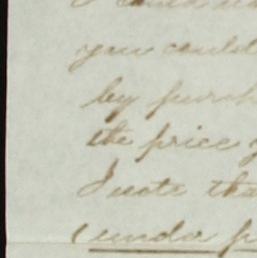 I could
you could
by purch
the price
I note tha
(under p